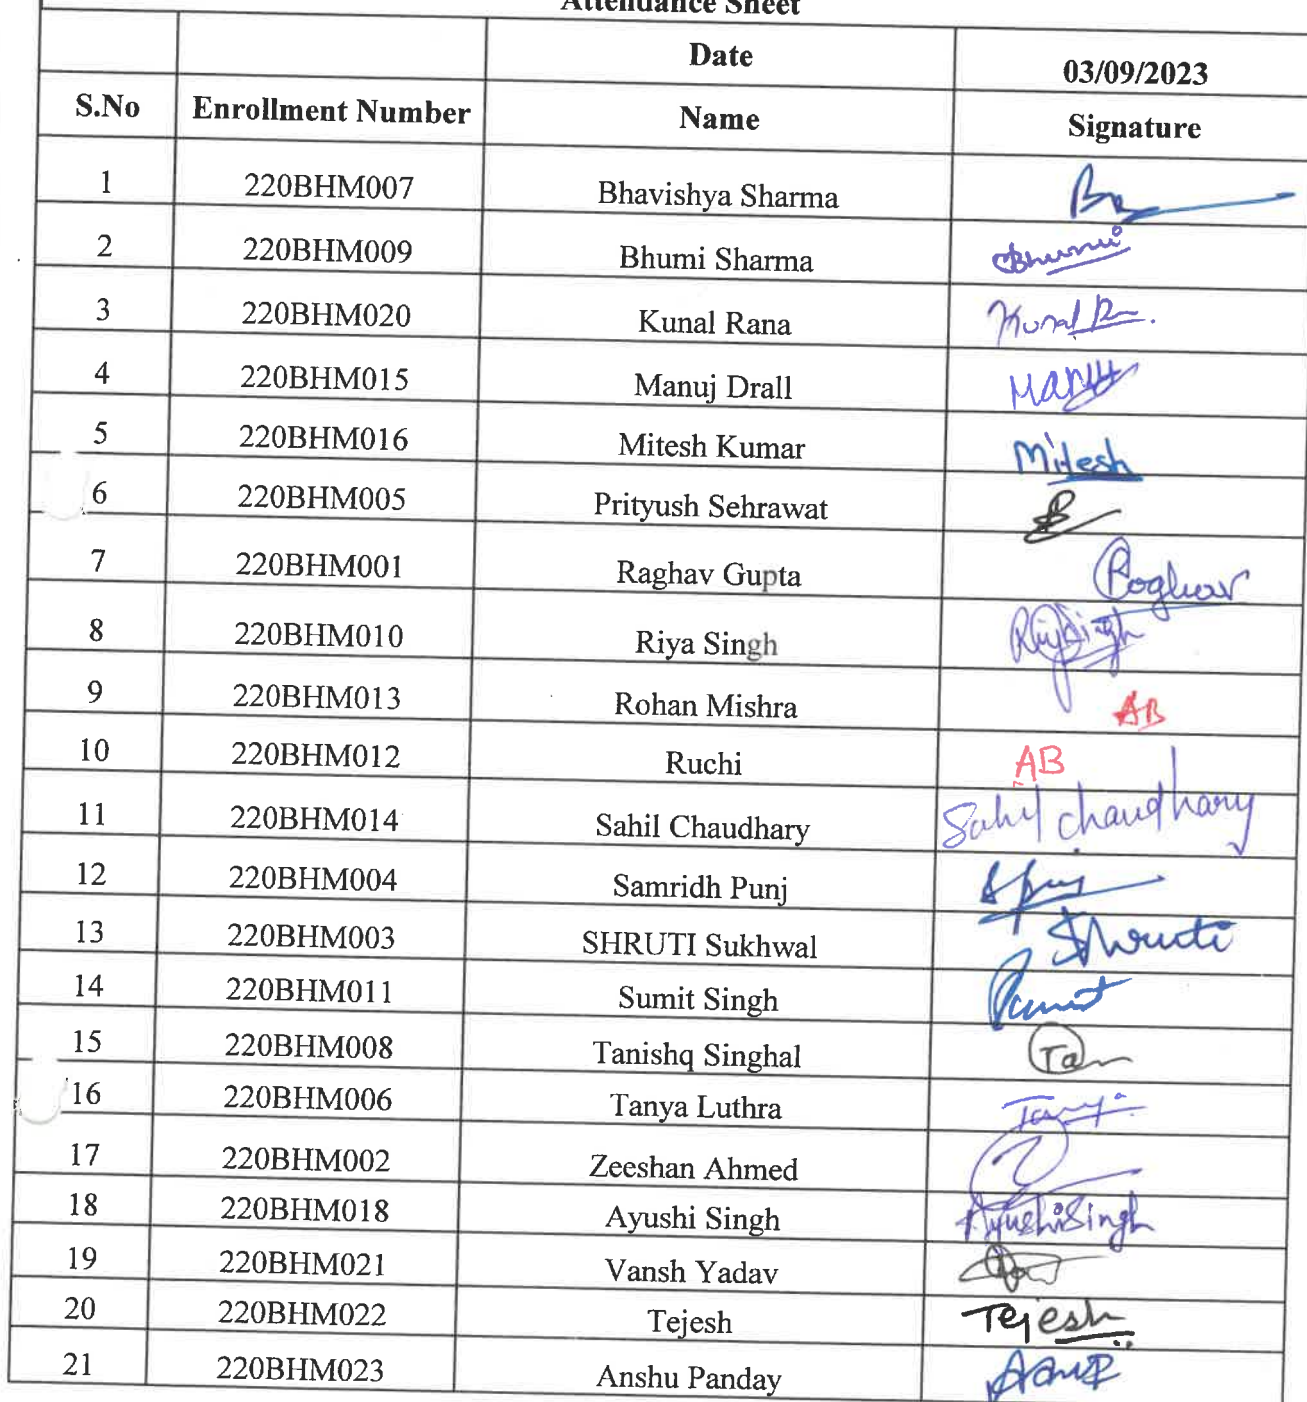 Attendance Sheet
Date 03/09/2023
S.No Enrollment Number Name Signature
1 220BHM007 Bhavishya Sharma
2 220BHM009 Bhumi Sharma Bhumi
3 220BHM020 Kunal Rana Kunal
4 220BHM015 Manuj Drall Manuj
5 220BHM016 Mitesh Kumar Mitesh
6 220BHM005 Prityush Sehrawat
7 220BHM001 Raghav Gupta Raghav
8 220BHM010 Riya Singh Riya Singh
9 220BHM013 Rohan Mishra AB
10 220BHM012 Ruchi AB
11 220BHM014 Sahil Chaudhary Sahil chaudhary
12 220BHM004 Samridh Punj
13 220BHM003 SHRUTI Sukhwal Shruti
14 220BHM011 Sumit Singh Sumit
15 220BHM008 Tanishq Singhal Tan
16 220BHM006 Tanya Luthra Tanya
17 220BHM002 Zeeshan Ahmed
18 220BHM018 Ayushi Singh Ayushi Singh
19 220BHM021 Vansh Yadav
20 220BHM022 Tejesh Tejesh
21 220BHM023 Anshu Panday